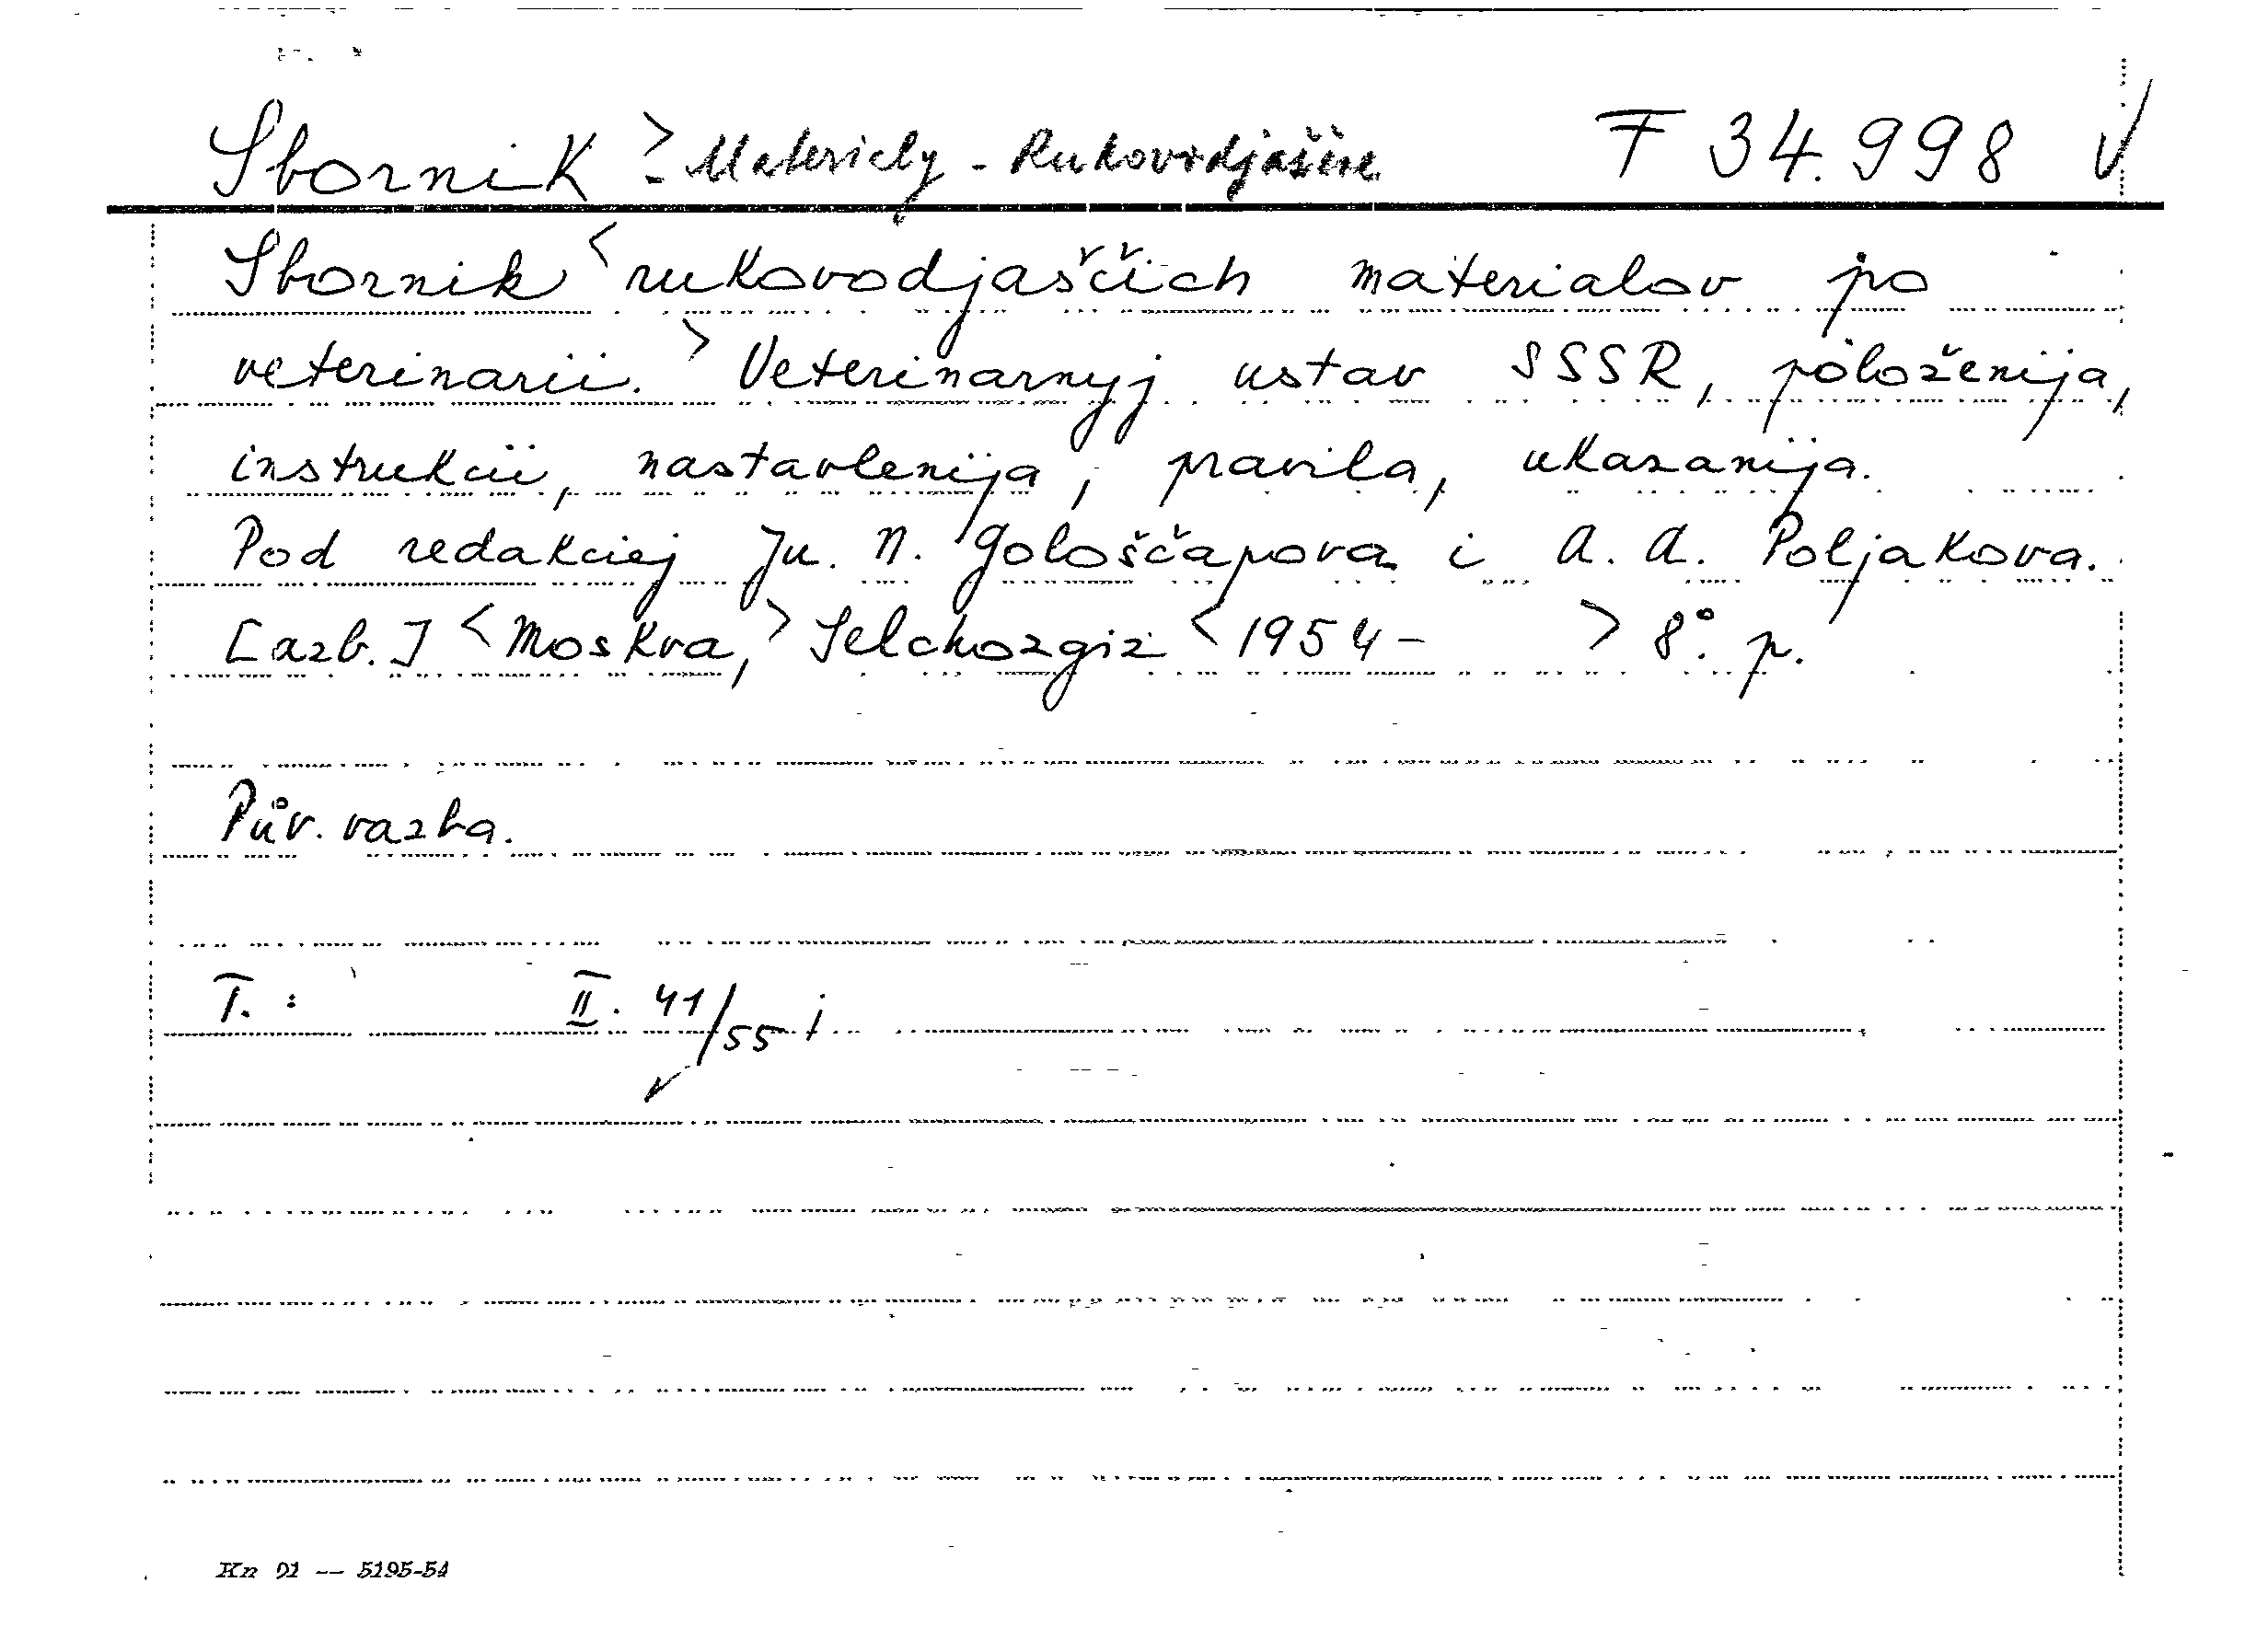 Sborník > - Materialy - Rukovodjaščie F 34.998 V
Sborník < rukovodjaščich materialov po
veterinarii. > Veterinarnyj ustav SSSR, položenija,
instrukcii, nastavlenija, pravila, ukazanija.
Pod redakciej Ju. N. Gološčapova i A. A. Poljakova.
[azb.] < Moskva, > Selchozgiz < 1954 - > 8°. p.
Pův. vazba.
T. : II. 41/55 j
Kn 01 -- 5195-54